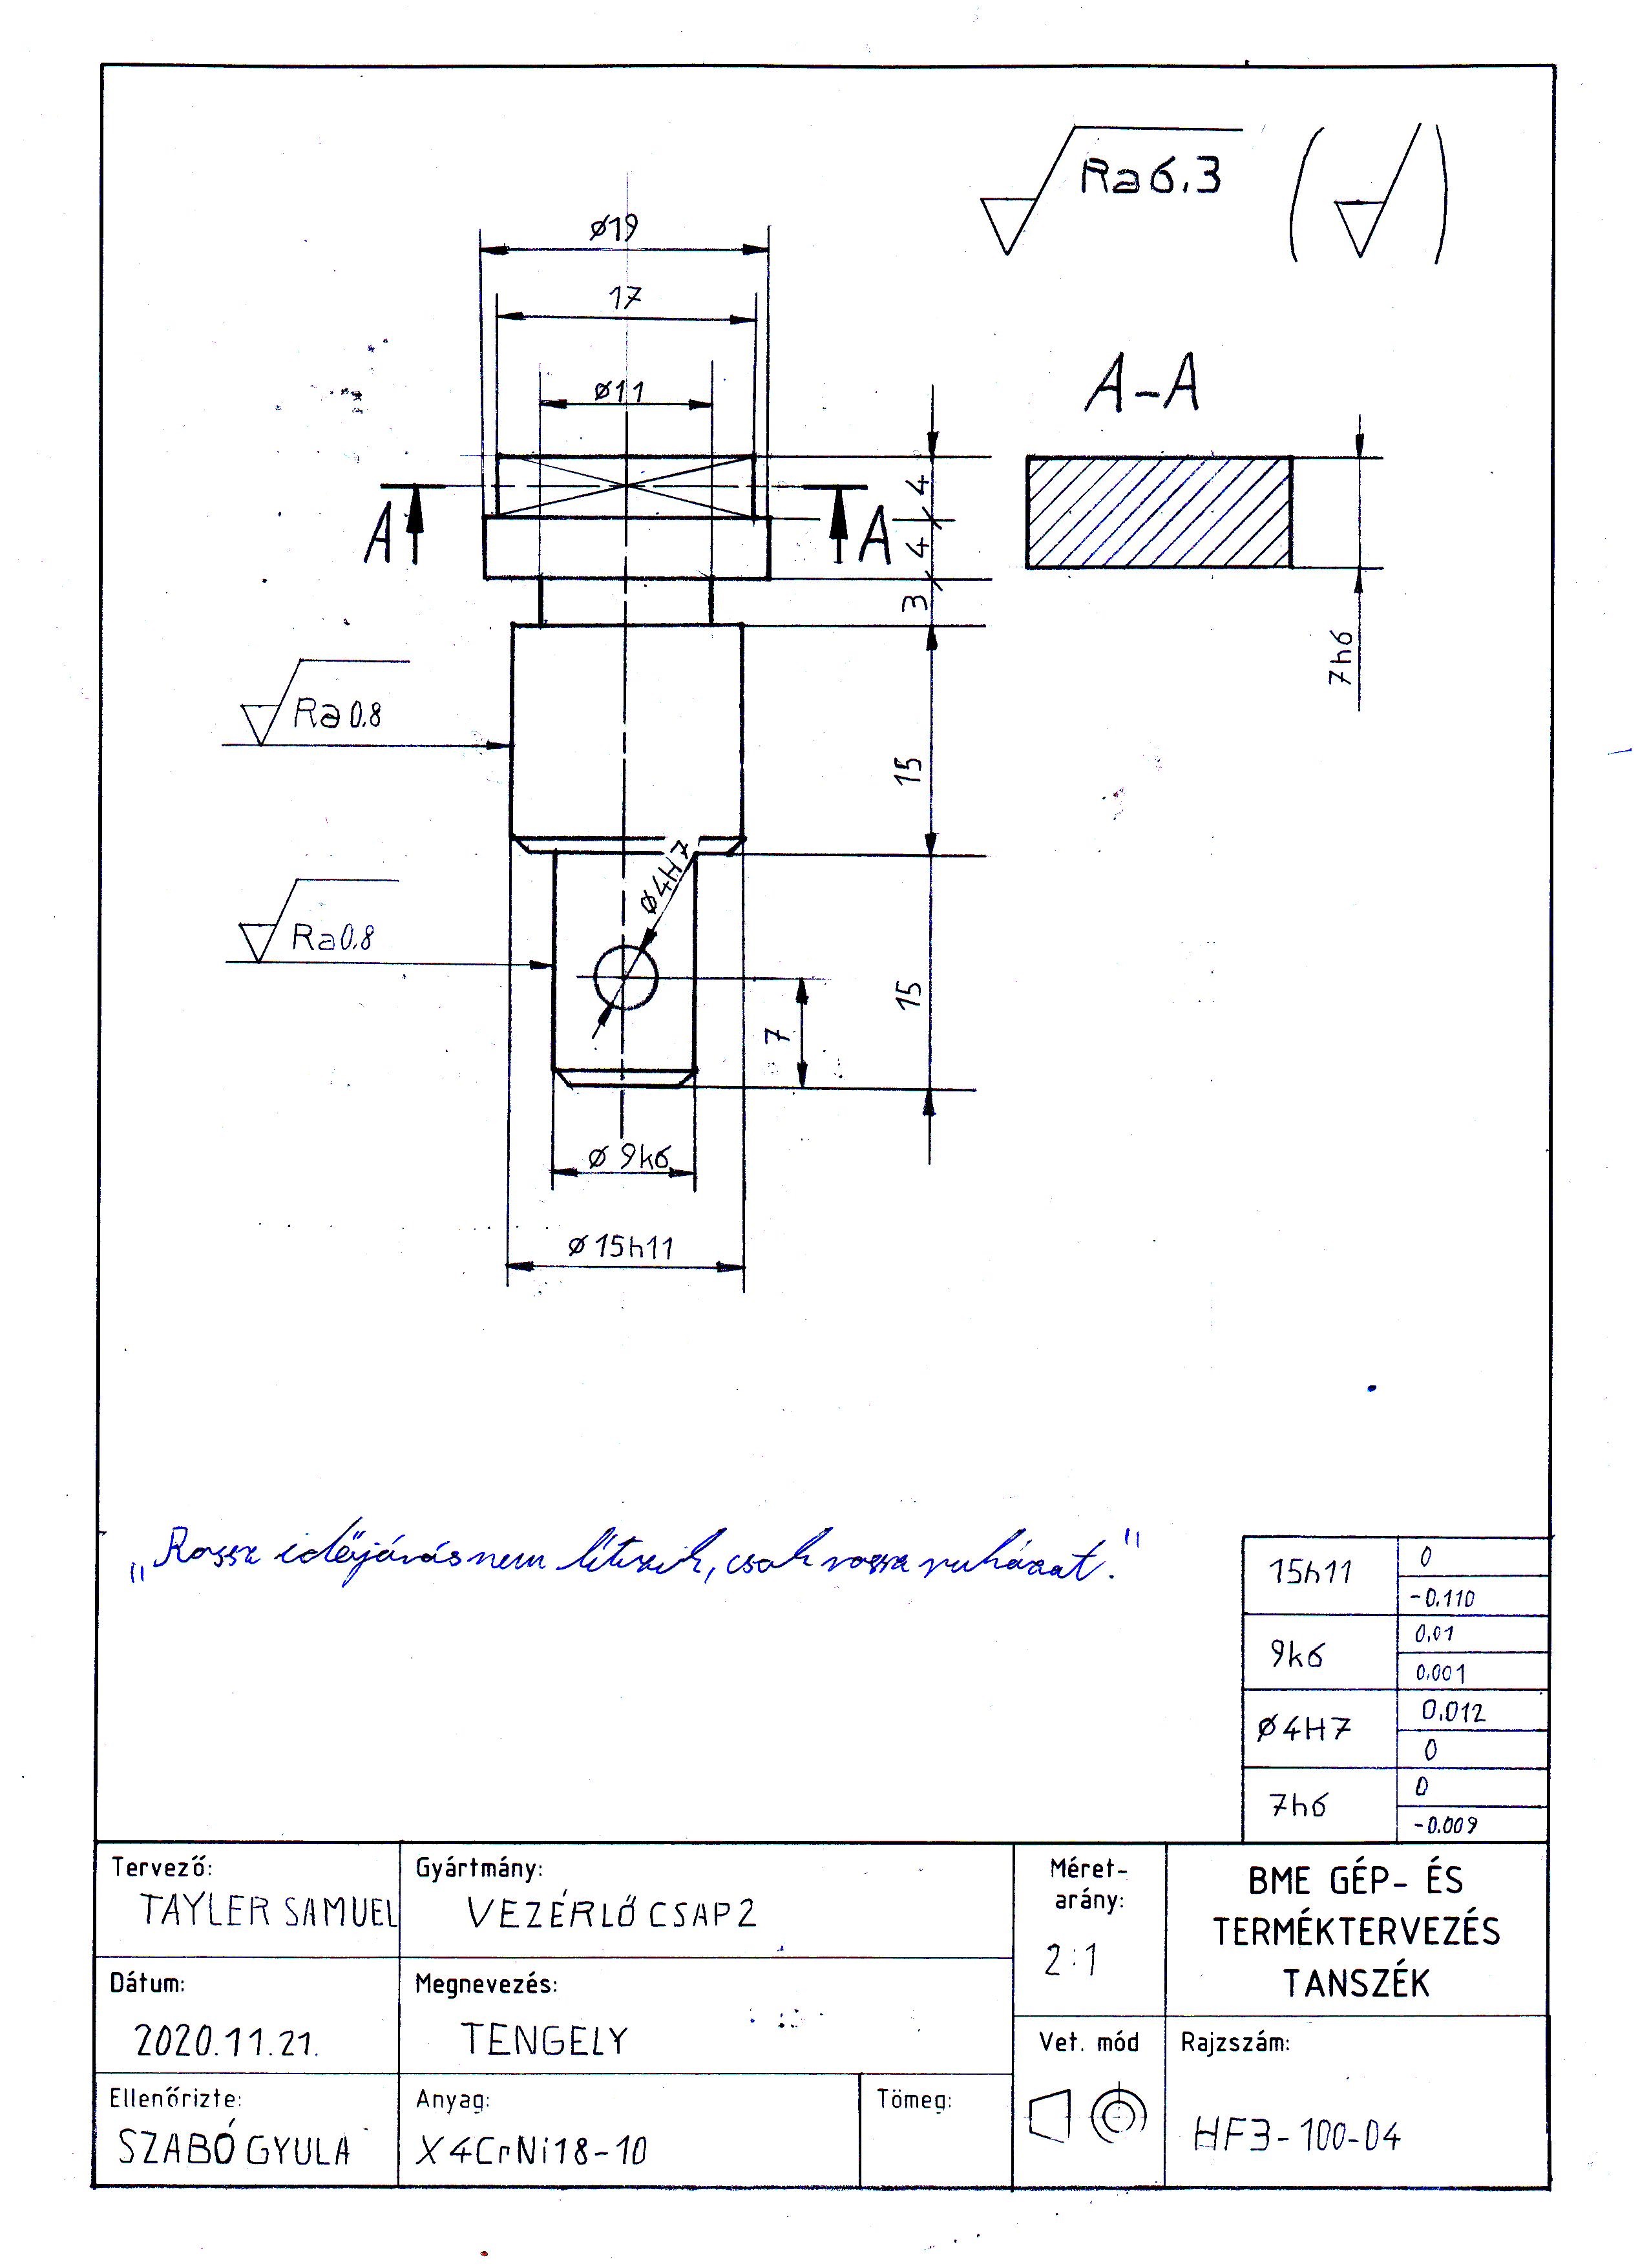 Ra 6.3
ø19
17
ø11
A-A
4
A
A
4
3
7h6
Ra 0.8
15
ø4H7
Ra 0.8
15
7
ø 9k6
ø 15h11
„Rossz időjárás nem létezik, csak rossz ruházat."
15h11
0
-0.110
9k6
0,01
0.001
ø 4H7
0.012
0
7h6
0
-0.009
Tervező:
TAYLER SAMUEL
Gyártmány:
VEZÉRLŐ CSAP 2
Méret-
arány:
2:1
BME GÉP- ÉS
TERMÉKTERVEZÉS
TANSZÉK
Dátum:
2020.11.21.
Megnevezés:
TENGELY
Vet. mód
Rajzszám:
HF3-100-04
Ellenőrizte:
SZABÓ GYULA
Anyag:
X4CrNi18-10
Tömeg: